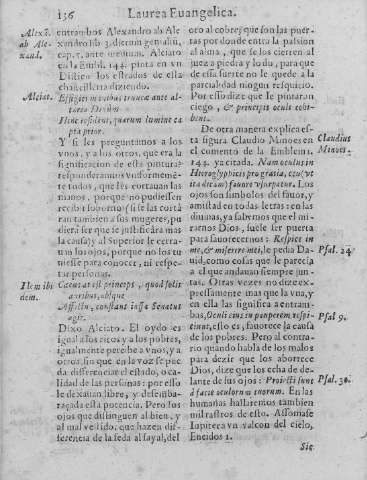 136 Laurea Euangelica.
Alexã.
ab Ale-
xand.
entrambos Alexandro ab Ale
xandro lib 3. dierum genialiũ,
cap. 5. ante medium. Alciato
en la Embl. 144. pinta en vn
Distico los estrados de esta
chancilleria diziendo.
Alciat.
Effigies manibus truncæ ante al-
taria Deum
Hinc resident, quarum lumine ca
pta prior.
Y si les preguntamos a los
vnos, y a los otros, que era la
significacion de esta pintura
respondieramos vniformemẽ-
te todos, que les cortauan las
manos, porque no pudiessen
recibir soborno (si se las cortà
ran tambien a sus mugeres, pu
diera ser que se justificàra mas
la causa) y al Superior le cerra-
uan los ojos, porque no los tu
uiesse para conocer, ni respe-
tar personas.
Idem ibi
dem.
Cæcus at est princeps, quod solis
auribus, absque
Affectu, constans iussa Senatus
agit.
Dixo Alciato. El oydo es
igual a los ricos, y a los pobres,
igualmente percibe a vnos, y a
otros sin que en la voz se pue
da diferenciar el estado, o ca-
lidad de las personas: por esso
le dexauan libre, y desemba-
raçada esta potencia. Pero los
ojos que distinguen al bien, y
al mal vestido, que hazen dif-
ferencia de la seda al sayal, del
oro al cobre, essos que son las puer-
tas por donde entra la passion
al alma, que se los cierren al
juez a piedra y lodo, para que
de essa suerte no le quede a la
parcialidad ningun resquicio.
Por esso dize que le pintaran
ciego, & principis oculi cohi-
bent.
De otra manera explica es-
ta figura Claudio Minoes en
Claudius
Minoes.
el comento de la Emblema,
144. ya citada. Nam oculus in
Hieroglyphicis pro gratia, ceu (vt
ita dicam) fauore vsurpatur. Los
ojos son simbolos del fauor, y
amistad en todas letras: en las
diuinas, ya sabemos que el mi-
rarnos Dios, suele ser puerta
para fauorecernos: Respice in
me, & miserere mei, le pedia Da-
Psal. 24.
uid, como cosas que le parecia
a el que andauan siempre jun-
tas. Otras vezes no dize ex-
pressamente mas que la vna, y
en ella las significa a entram-
bas, Oculi eius in pauperem respi-
Psal 9.
ciunt, esto es, fauorece la causa
de los pobres. Pero al contra-
rio quando habla de los malos
para dezir que los aborrece
Dios, dize que los echa de de-
lante de sus ojos: Proiecti sunt
Psal. 30.
à facie oculorum tuorum. En las
humanas hallaremos tambien
mil rastros de esto. Assomase
Iupiter a vn valcon del cielo,
Eneidos 1.
Sic